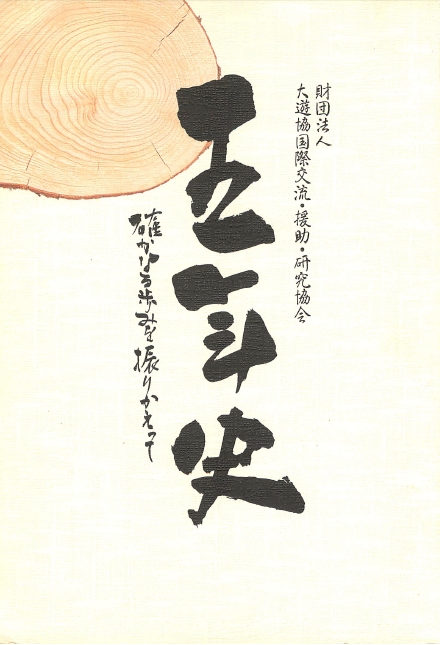 財団法人
大遊協国際交流・援助・研究協会
五年史
確かな歩みを振りかえって